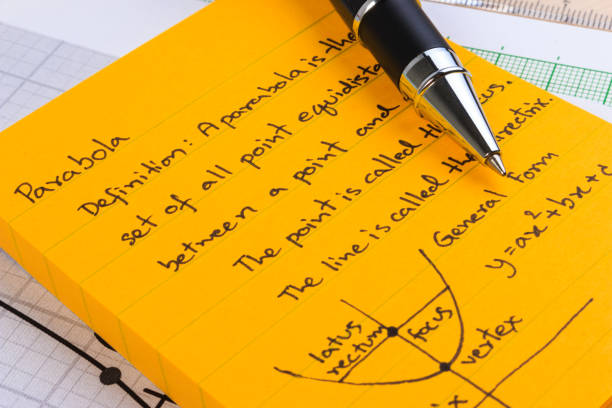 Parabola
Definition: A parabola is the
set of all point equidista
between a point and
The point is called the cus.
The line is called the irectrix.
General form
y=ax²+bx+c
latus
rectum
focus
vertex
ix